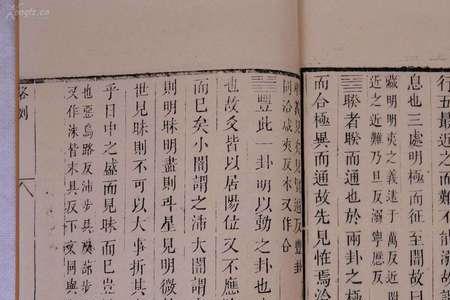 行五最近之而難不能
息也三處明極而征至闇故曰
藏明明夷之義遠于萬反近
近之近難乃旦反溺寧歷反
䷥睽者睽而通也於兩卦之極
而合極異而通故先見怪焉洽
同洽咸夾反本又作合
䷶豐此一卦明以動之卦也
也故爻皆以居陽位又不應
而已矣小闇謂之沛大闇謂
則明昧明盡則斗星見明微
世見昧則不可以大事折其
乎日中之盛而見昧而已豈
也惡烏路反沛步貝反蔀步
又作沬皆末貝反下文同與
略例
八